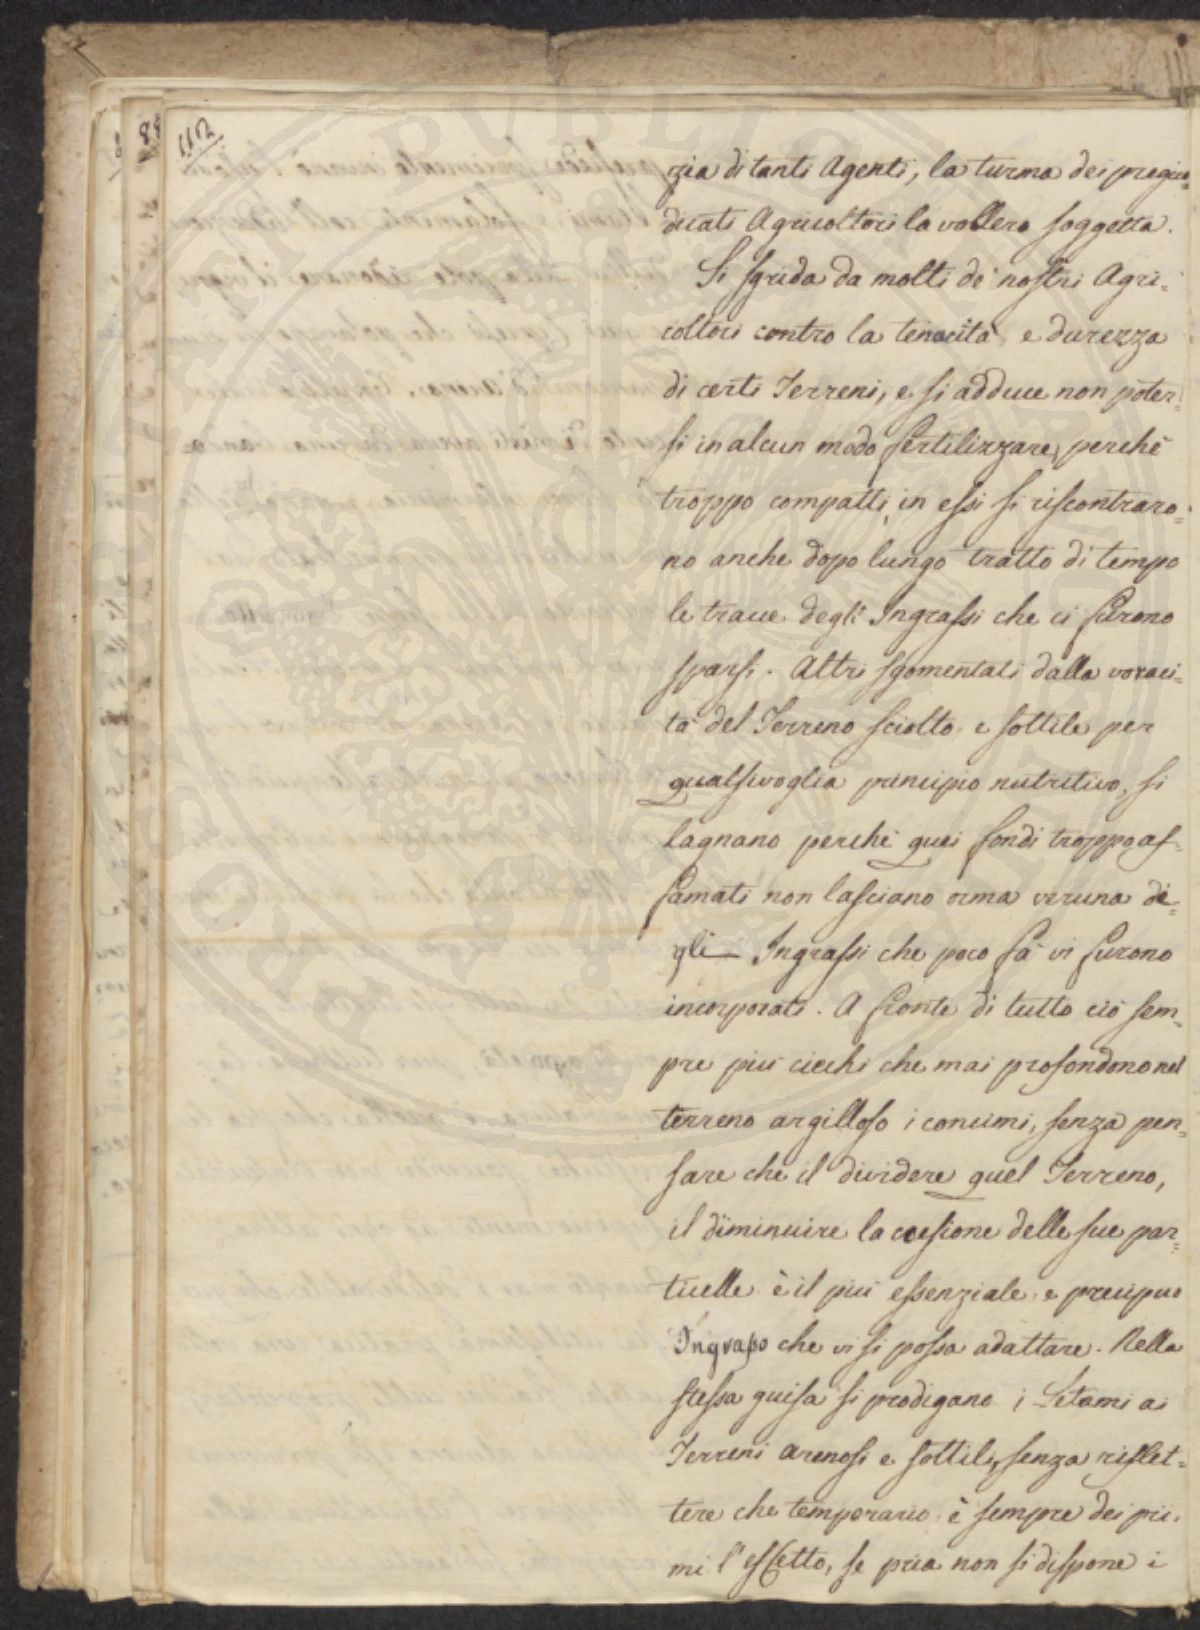 112
zia di tanti Agenti, la turma dei pregiu=
dicati Agricoltori la vollero soggetta.
Si sgrida da molti de' nostri Agri=
coltori contro la tenacità, e durezza
di certi Terreni, e si adduce non poter=
si in alcun modo fertilizzare, perchè
troppo compatti, in essi si riscontraro=
no anche dopo lungo tratto di tempo
le tracce degl' Ingrassi che ci furono
sparsi. Altri sgomentati dalla voraci=
tà del Terreno sciolto e sottile per
qualsivoglia principio nutritivo, si
lagnano perchè quei fondi troppo af=
famati non lasciano orma veruna de=
gli Ingrassi che poco fà vi furono
incorporati. A fronte di tutto ciò sem=
pre più ciechi che mai profondono nel
terreno argilloso i concimi, senza pen=
sare che il dividere quel Terreno,
il diminuire la coesione delle sue par=
ticelle è il più essenziale e precipuo
Ingrasso che vi si possa adattare. Nella
stessa guisa si prodigano i Letami ai
Terreni arenosi e sottili, senza riflet=
tere che temporario è sempre dei pri=
mi l'effetto, se pria non si dispone i